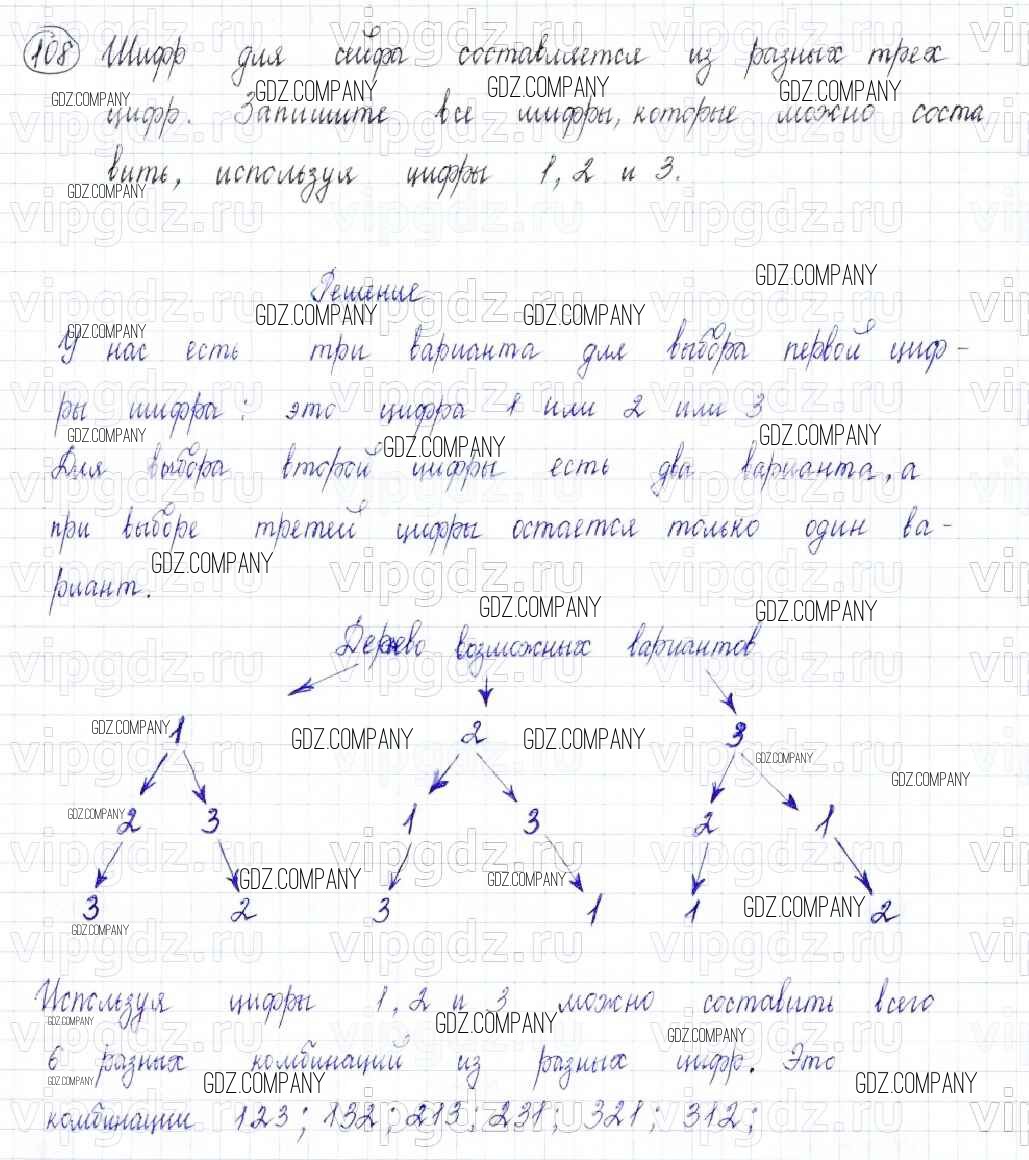 108 Шифр для сейфа составляется из разных трех
цифр. Запишите все шифры, которые можно соста
вить, используя цифры 1, 2 и 3.
Решение
У нас есть три варианта для выбора первой циф-
ры шифра: это цифра 1 или 2 или 3
Для выбора второй цифры есть два варианта, а
при выборе третей цифры остается только один ва-
риант.
Дерево возможных вариантов
1 2 3
2 3 1 3 2 1
3 2 3 1 1 2
Используя цифры 1, 2 и 3 можно составить всего
6 разных комбинаций из разных цифр. Это
комбинации 123; 132; 213; 231; 321; 312;
GDZ.COMPANY
vipgdz.ru